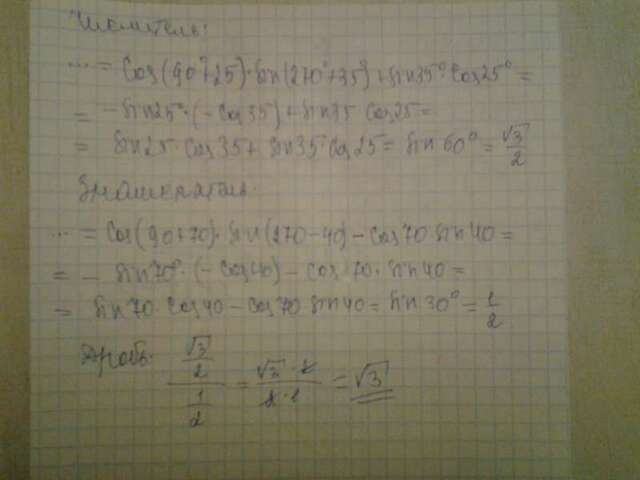 Числитель:
... = Cos(90°+25)·Sin(270°+35°)+Sin35°·Cos25° =
= -Sin25°·(-Cos35)+Sin35 Cos25 =
= Sin25·Cos35+Sin35·Cos25 = Sin60° = √3/2
Знаменатель.
... = Cos(90+70)·Sin(270-40)-Cos70 Sin40 =
= - Sin70°·(-Cos40)-Cos70·Sin40 =
= Sin70·Cos40-Cos70 Sin40 = Sin30° = 1/2
Дробь. (√3/2)/(1/2) = (√3·2)/(2·1) = √3